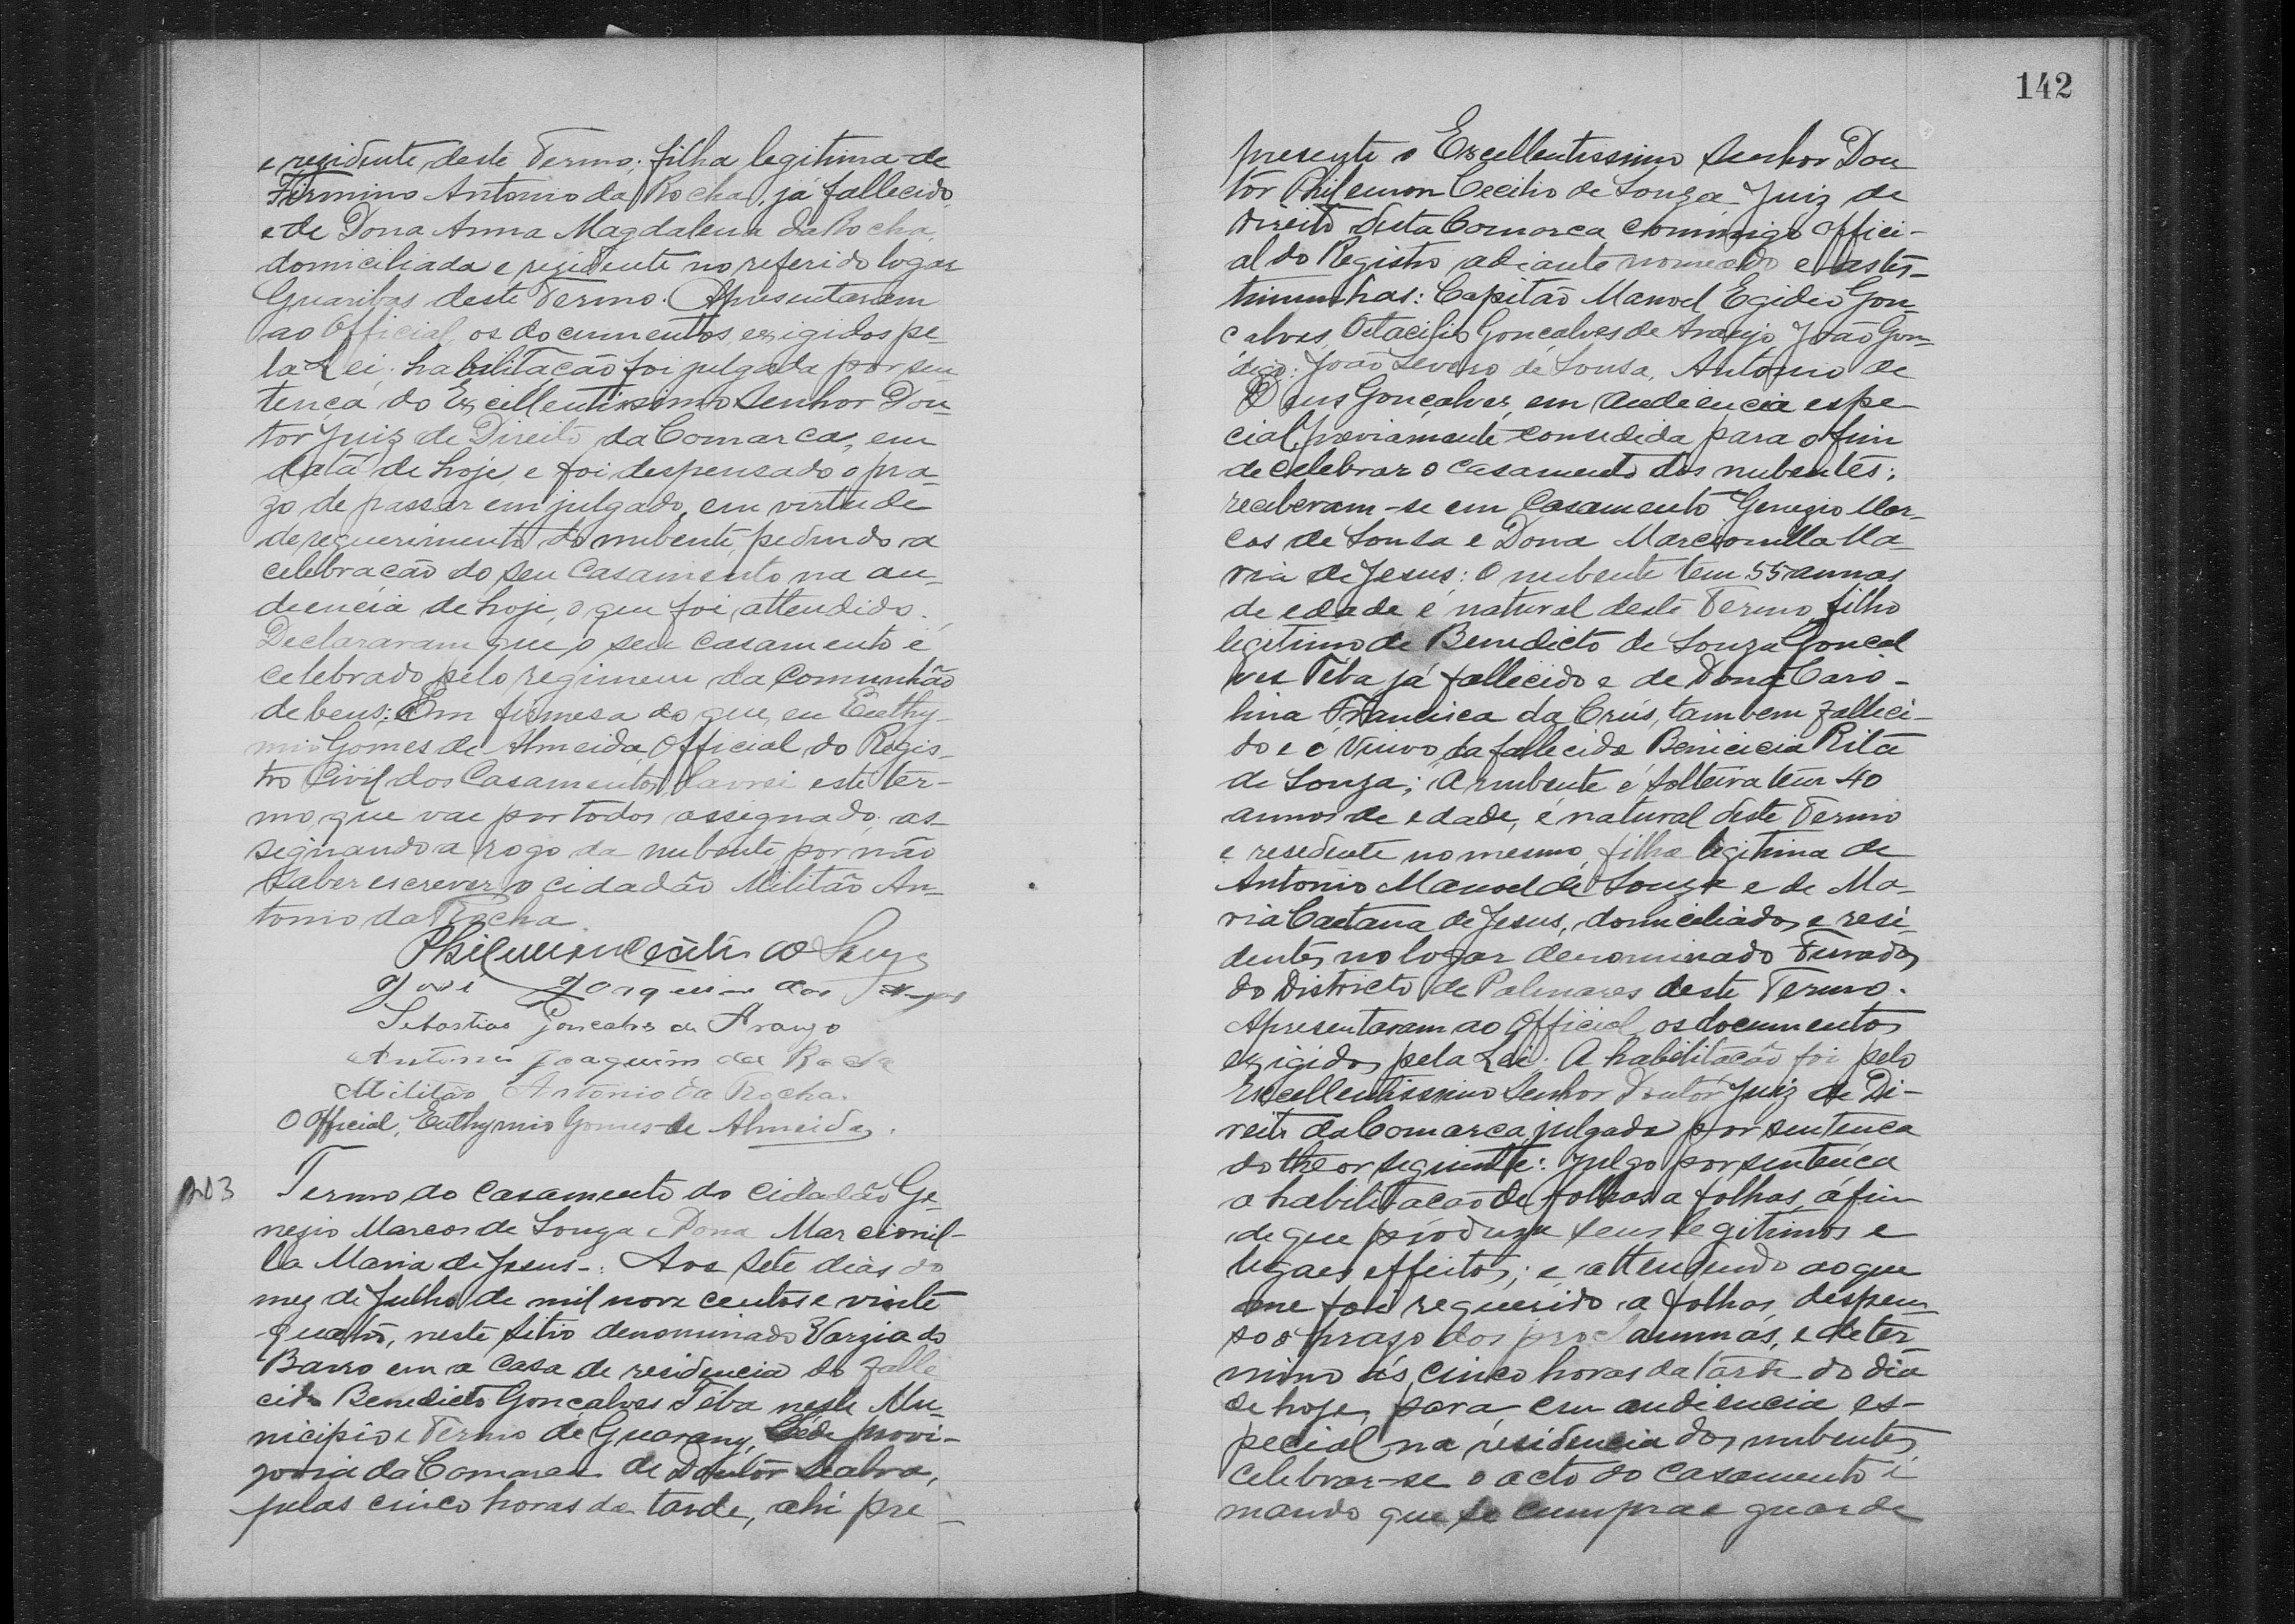 e residente deste Termo; filha legitima de
Firmino Antonio da Rocha, já fallecido,
e de Dona Anna Magdalena da Rocha,
domiciliada e residente no referido logar
Guaribas deste Termo. Apresentaram
ao Official os documentos exigidos pe-
la Lei; habilitação foi julgada por sen-
tença do Excellentissimo Senhor Dou-
tor Juiz de Direito da Comarca, em
data de hoje, e foi despensado o pra-
zo de passar em julgado, em virtude
de requerimento do nubente, pedindo a
celebração do seu casamento na au-
diencia de hoje, o que foi attendido.
Declararam que o seu casamento é
celebrado pelo regimem da comunhão
de bens: Em firmesa do que, eu Euthy-
mio Gomes de Almeida, Official do Regis-
tro Civil dos Casamentos, lavrei este ter-
mo, que vae por todos assignado, as-
signando a rogo da nubente, por não
saber escrever, o cidadão Militão An-
tonio da Rocha.
Philemon Cecilio de Souza
José Joaquim dos
Sebastião Gonçalves de Araujo
Antonio Joaquim da Rocha
Militão Antonio da Rocha.
O Official, Euthymio Gomes de Almeida.
Termo do casamento do cidadão Ge-
nezio Marcos de Souza e Dona Marcionil-
la Maria de Jesus-: Aos sete dias do
mez de Julho de mil nove centos e vinte
quatro, neste sitio denominado Varzia do
Barro em a casa de residencia do falle
cido Benedicto Gonçalves Téba neste Mu-
nicipio e Termo de Guarany, Séde provi-
zoria da Comarca de Doutôr Seabra,
pelas cinco horas da tarde, ahi pre-
142
presente o Excellentissimo Senhor Dou-
tor Philemon Cecilio de Souza Juiz de
Direito desta Comarca commigo Offici-
al do Registro adiante nomeado e as tes-
timunhas: Capitão Manoel Egidio Gon-
çalves, Otacilio Gonçalves de Araujo João Gon-
digo: João Severo de Sousa, Antonio de
Deus Gonçalves, em audiencia espe
cial, previamente consedida para o fim
de celebrar o casamento dos nubentes;
receberam-se em casamento Genezio Mar-
cos de Sousa e Dona Marcionilla Ma-
ria de Jesus: O nubente tem 55 annos
de edade, é natural deste Termo, filho
legitimo de Benedicto de Souza Goncal
ves Téba já fallecido e de Dona Caro-
lina Francisca da Crús, tambem falleci-
do e é viuvo da fallecida Rita
de Souza; A nubente é solteira tem 40
annos de edade, é natural deste Termo
e resedente no mesmo, filha legitima de
Antonio Manoel de Souza e de Ma-
ria Caetana de Jesus, domiciliados e resi-
dentes no logar denominado Furados
do Districto de Palmares deste Termo.
Apresentaram ao Official os documentos
exigidos pela Lei. A habilitação foi pelo
Excellentissimo Senhor Doutor Juiz de Di-
reito da Comarca, julgada por sentença
do theor seguinte: Julgo por sentença
a habilitação de folhas a folhas, áfim
de que produza seus legitimos e
legaes effeitos; e attendendo ao que
me foi requerido a folhas despen-
so o praso dos proclamas, e deter
mino ás cinco horas da tarde do dia
de hoje, para, em audiencia es-
pecial na residencia dos nubentes
celebrar-se o acto do casamento é
mando que se cumpra e guarde